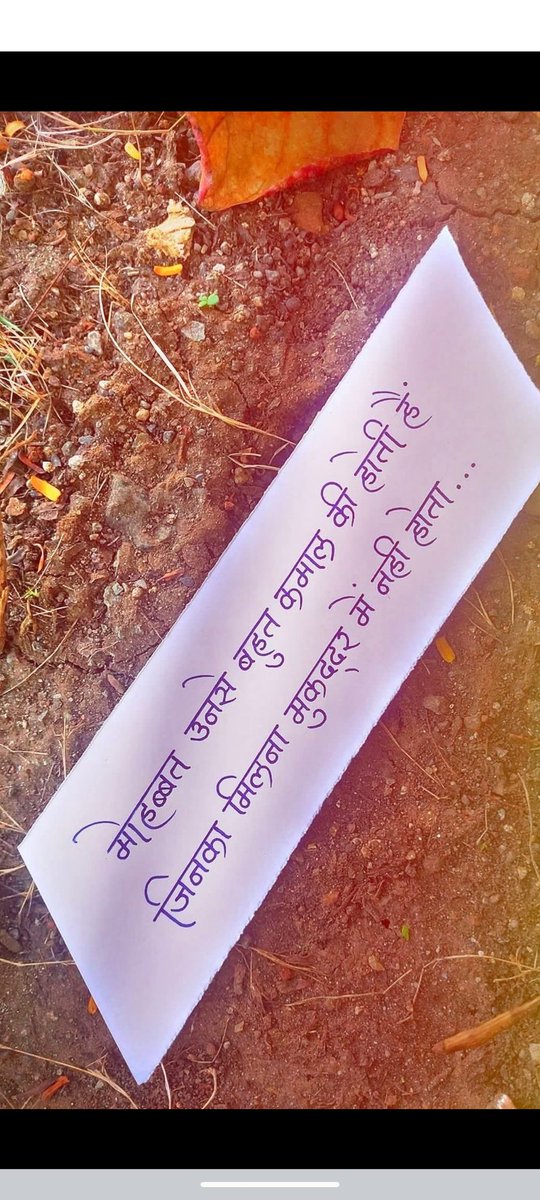 मोहब्बत उनसे बहुत कमाल की होती हैं
जिनका मिलना मुकद्दर में नही होता...